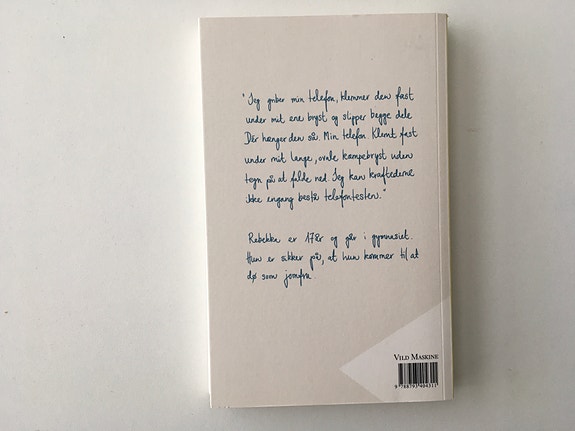 "Jeg griber min telefon, klemmer den fast
under mit ene bryst og slipper begge dele.
Dér hænger den så. Min telefon. Klemt fast
under mit lange, ovale kæmpebryst uden
tegn på at falde ned. Jeg kan kraftedeme
ikke engang bestå telefontesten."
Rebekka er 17 år og går i gymnasiet.
Hun er sikker på, at hun kommer til at
dø som jomfru.
VILD MASKINE
9 788793 404311